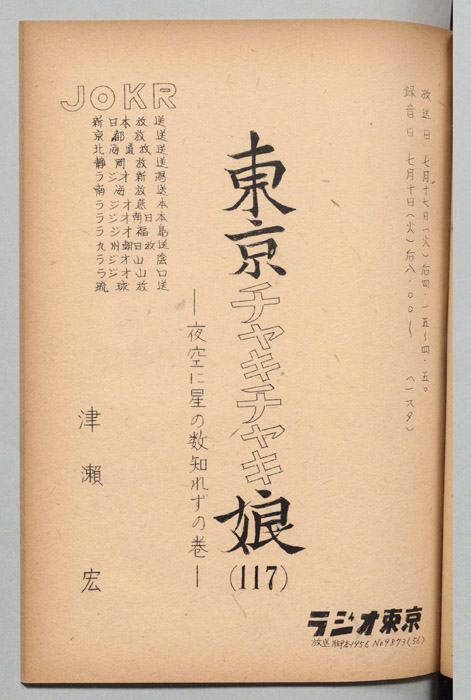 放送日 七月十七日(火)后四・一五～四・五〇
録音日 七月十日(火)后八・〇〇～ (一スタ)
東京チャキチャキ娘(117)
―夜空に星の数知れずの巻―
JOKR
新日本放送
京都放送
北海道放送
静岡放送
ラジオ新潟
南海放送
ラジオ熊本
ラジオ南日本
ラジオ福島
九州朝日放送
ラジオ山陰
ラジオ山口
琉球放送
津瀬宏
ラジオ東京
放送脚本1956 No9873(56)